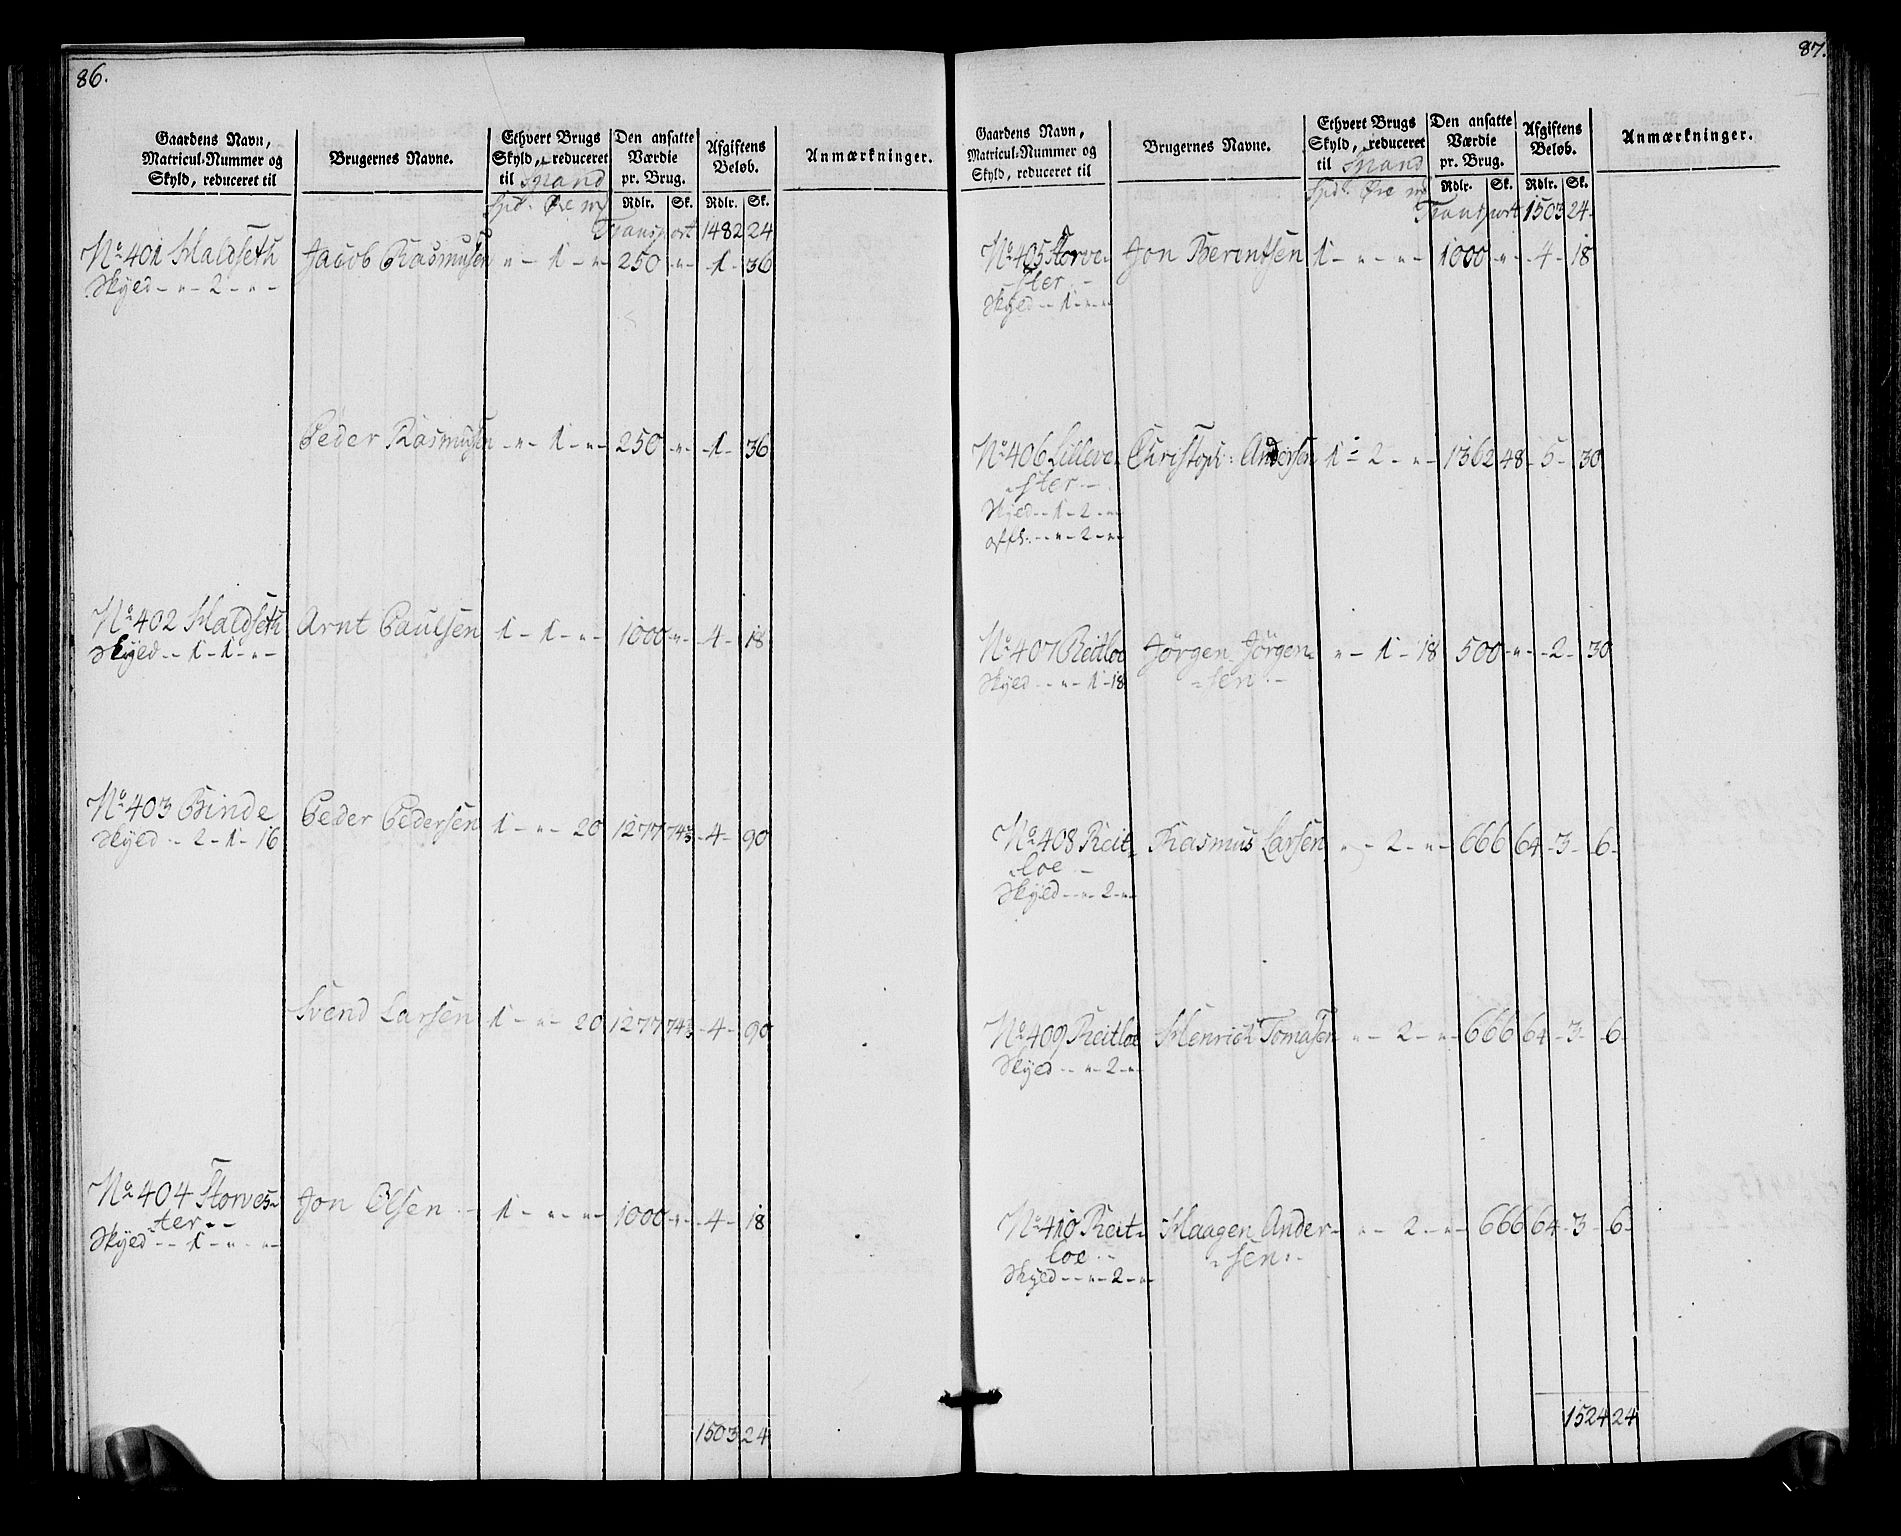 86.
Gaardens Navn,
Matricul-Nummer og
Skyld, reduceret til
Brugernes Navne.
Ethvert Brugs
Skyld, reduceret
til Spand
Den ansatte
Værdie
pr. Brug.
Afgiftens
Beløb.
Anmærkninger.
Rdlr. Sk. Rdlr. Sk.
Transport 1482 24
No 401 Haldseth Jacob Rasmusen " - 1 - " 250 - " - 1 - 36
Skyld - " - 2 - " -
Peder Rasmusen - " - 1 - " - 250 - " - 1 - 36
No 402 Haldseth Arnt Paulsen 1 - 1 - " - 1000 - " - 4 - 18
Skyld - - 1 - 1 - " -
No 403 Binde Peder Pedersen 1 - " - 20 1277 74⅔ - 4 - 90
Skyld - - 2 - 1 - 16
Svend Larsen 1 - " - 20 1277 74⅔ - 4 - 90
No 404 Storves- Jon Olsen 1 - " - " - 1000 - " - 4 - 18
ter - -
Skyld - - 1 - " - " -
1503 24
87.
Gaardens Navn,
Matricul-Nummer og
Skyld, reduceret til
Brugernes Navne.
Ethvert Brugs
Skyld, reduceret
til Spand
Den ansatte
Værdie
pr. Brug.
Afgiftens
Beløb.
Anmærkninger.
Rdlr. Sk. Rdlr. Sk.
Transport 1503 24
No 405 Storve- Jon Berentsen 1 - " - " - 1000 - " - 4 - 18
ster -
Skyld - - 1 - " - "
No 406 Lilleve- Christoph: Andersen 1 - 2 - " - 1362 48 - 5 - 30
- ster - -
Skyld - - 1 - 2 - "
- - " - 2 - " -
No 407 Reitloe Jørgen Jørgen- " - 1 - 18 500 - " - 2 - 30
Skyld - - " - 1 - 18 - sen -
No 408 Reit- Rasmus Larsen " - 2 - " - 666 64 - 3 - 6 -
- loe -
Skyld - - " - 2 - "
No 409 Reitloe Henrich Tomasen " - 2 - " - 666 64 - 3 - 6 -
Skyld - - " - 2 - "
No 410 Reit- Haagen Ander- " - 2 - " - 666 64 - 3 - 6 -
loe - - sen -
Skyld - - " - 2 - " -
1524 24